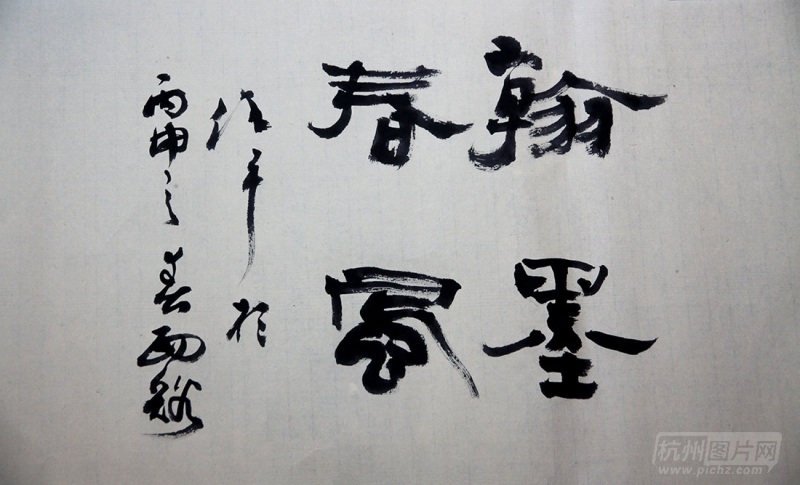 翰墨
春風
丙申之春西谿
杭州图片网
www.pichz.com